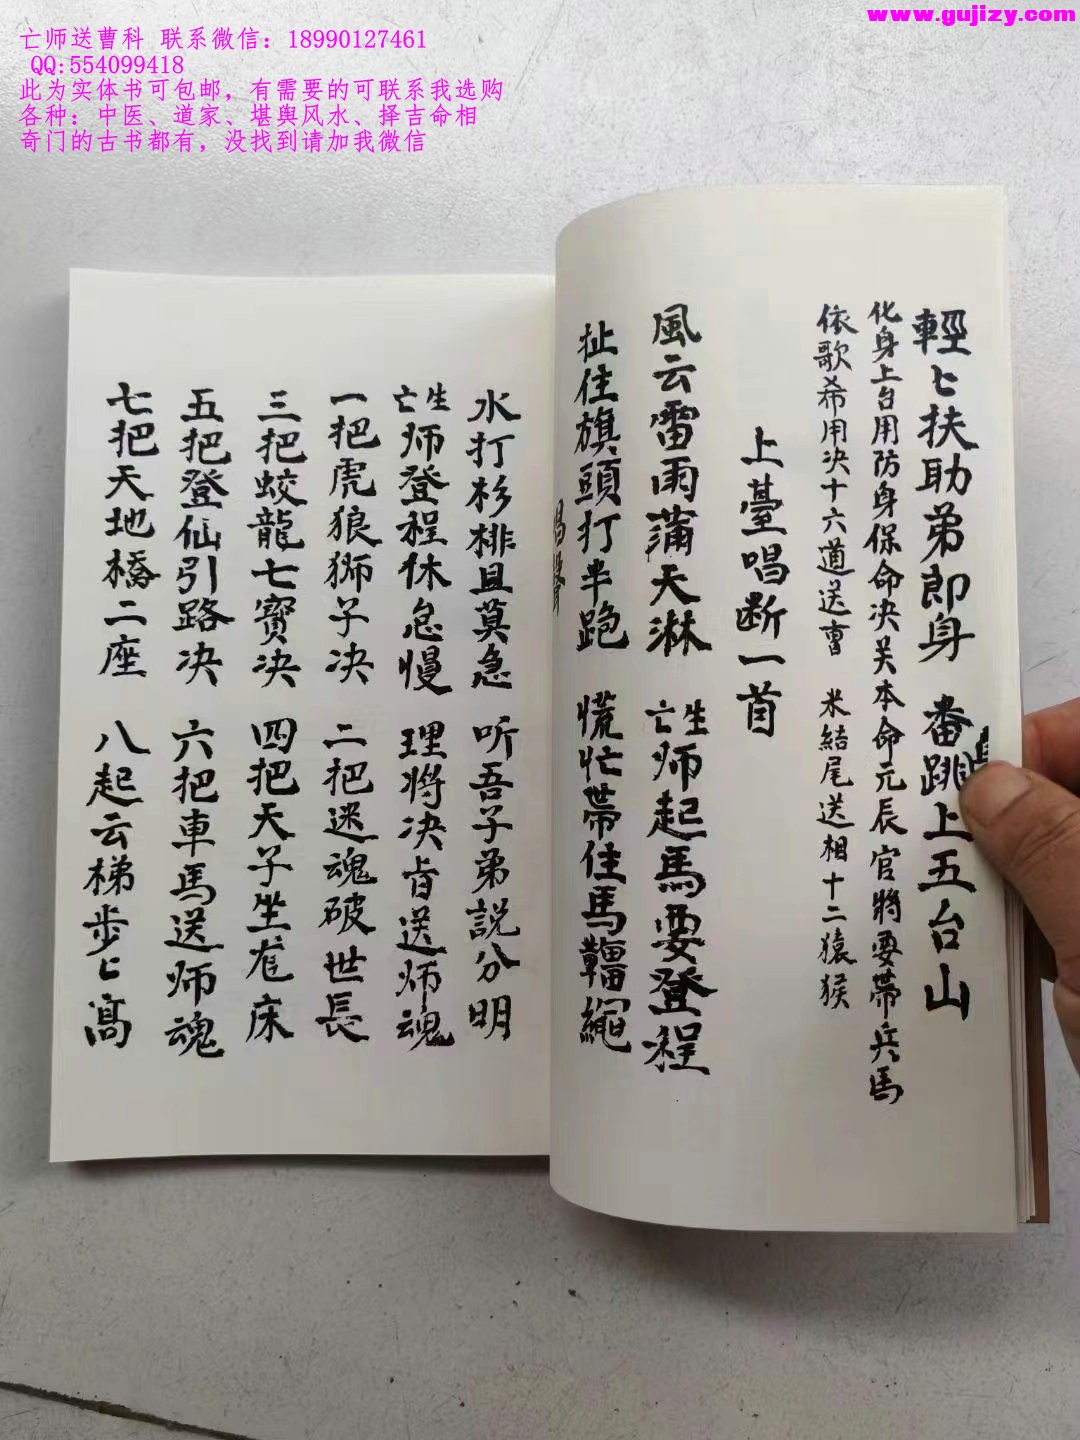 www.gujizy.com
亡师送曹科 联系微信：18990127461
QQ:554099418
此为实体书可包邮，有需要的可联系我选购
各种：中医、道家、堪舆风水、择吉命相
奇门的古书都有，没找到请加我微信
輕匕扶助弟郎身 番跳上五台山
化身上台用防身保命决关本命元辰官將要帶兵馬
依歌希用决十六道送曹 米結尾送相十二猿猴
上臺唱断一首
風云雷雨蒲天淋 亡生师起馬要登程
扯住旗頭打半跪 慌忙帶住馬韁繩
水打杉排且莫急 听吾子弟説分明
亡生师登程休怠慢 理将决旨送师魂
一把虎狼狮子决 二把迷魂破世長
三把蛟龍七寳决 四把天子坐龙床
五把登仙引路决 六把車馬送师魂
七把天地橋二座 八起云梯步匕高